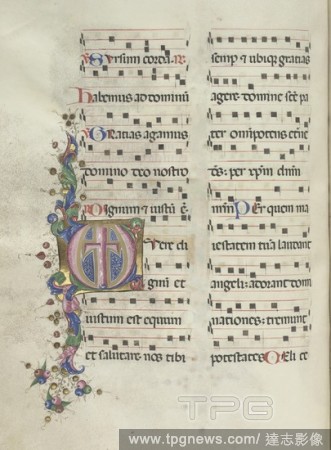 Sursum corda. R.
habemus ad dominū
Gratias agamus
domino deo nostro
Dignum et iustū ē.
Vere di
gnū et
iustum est equum
et salutare. nos tibi
semp et ubique gratias
agere. domine
omnipotens eterne
Per quem ma
iestatem tuā laudant
angeli: adorant dom
nationes: tremunt
potestates. Celi ce
TPG
www.tpgnews.com/ 達志影像